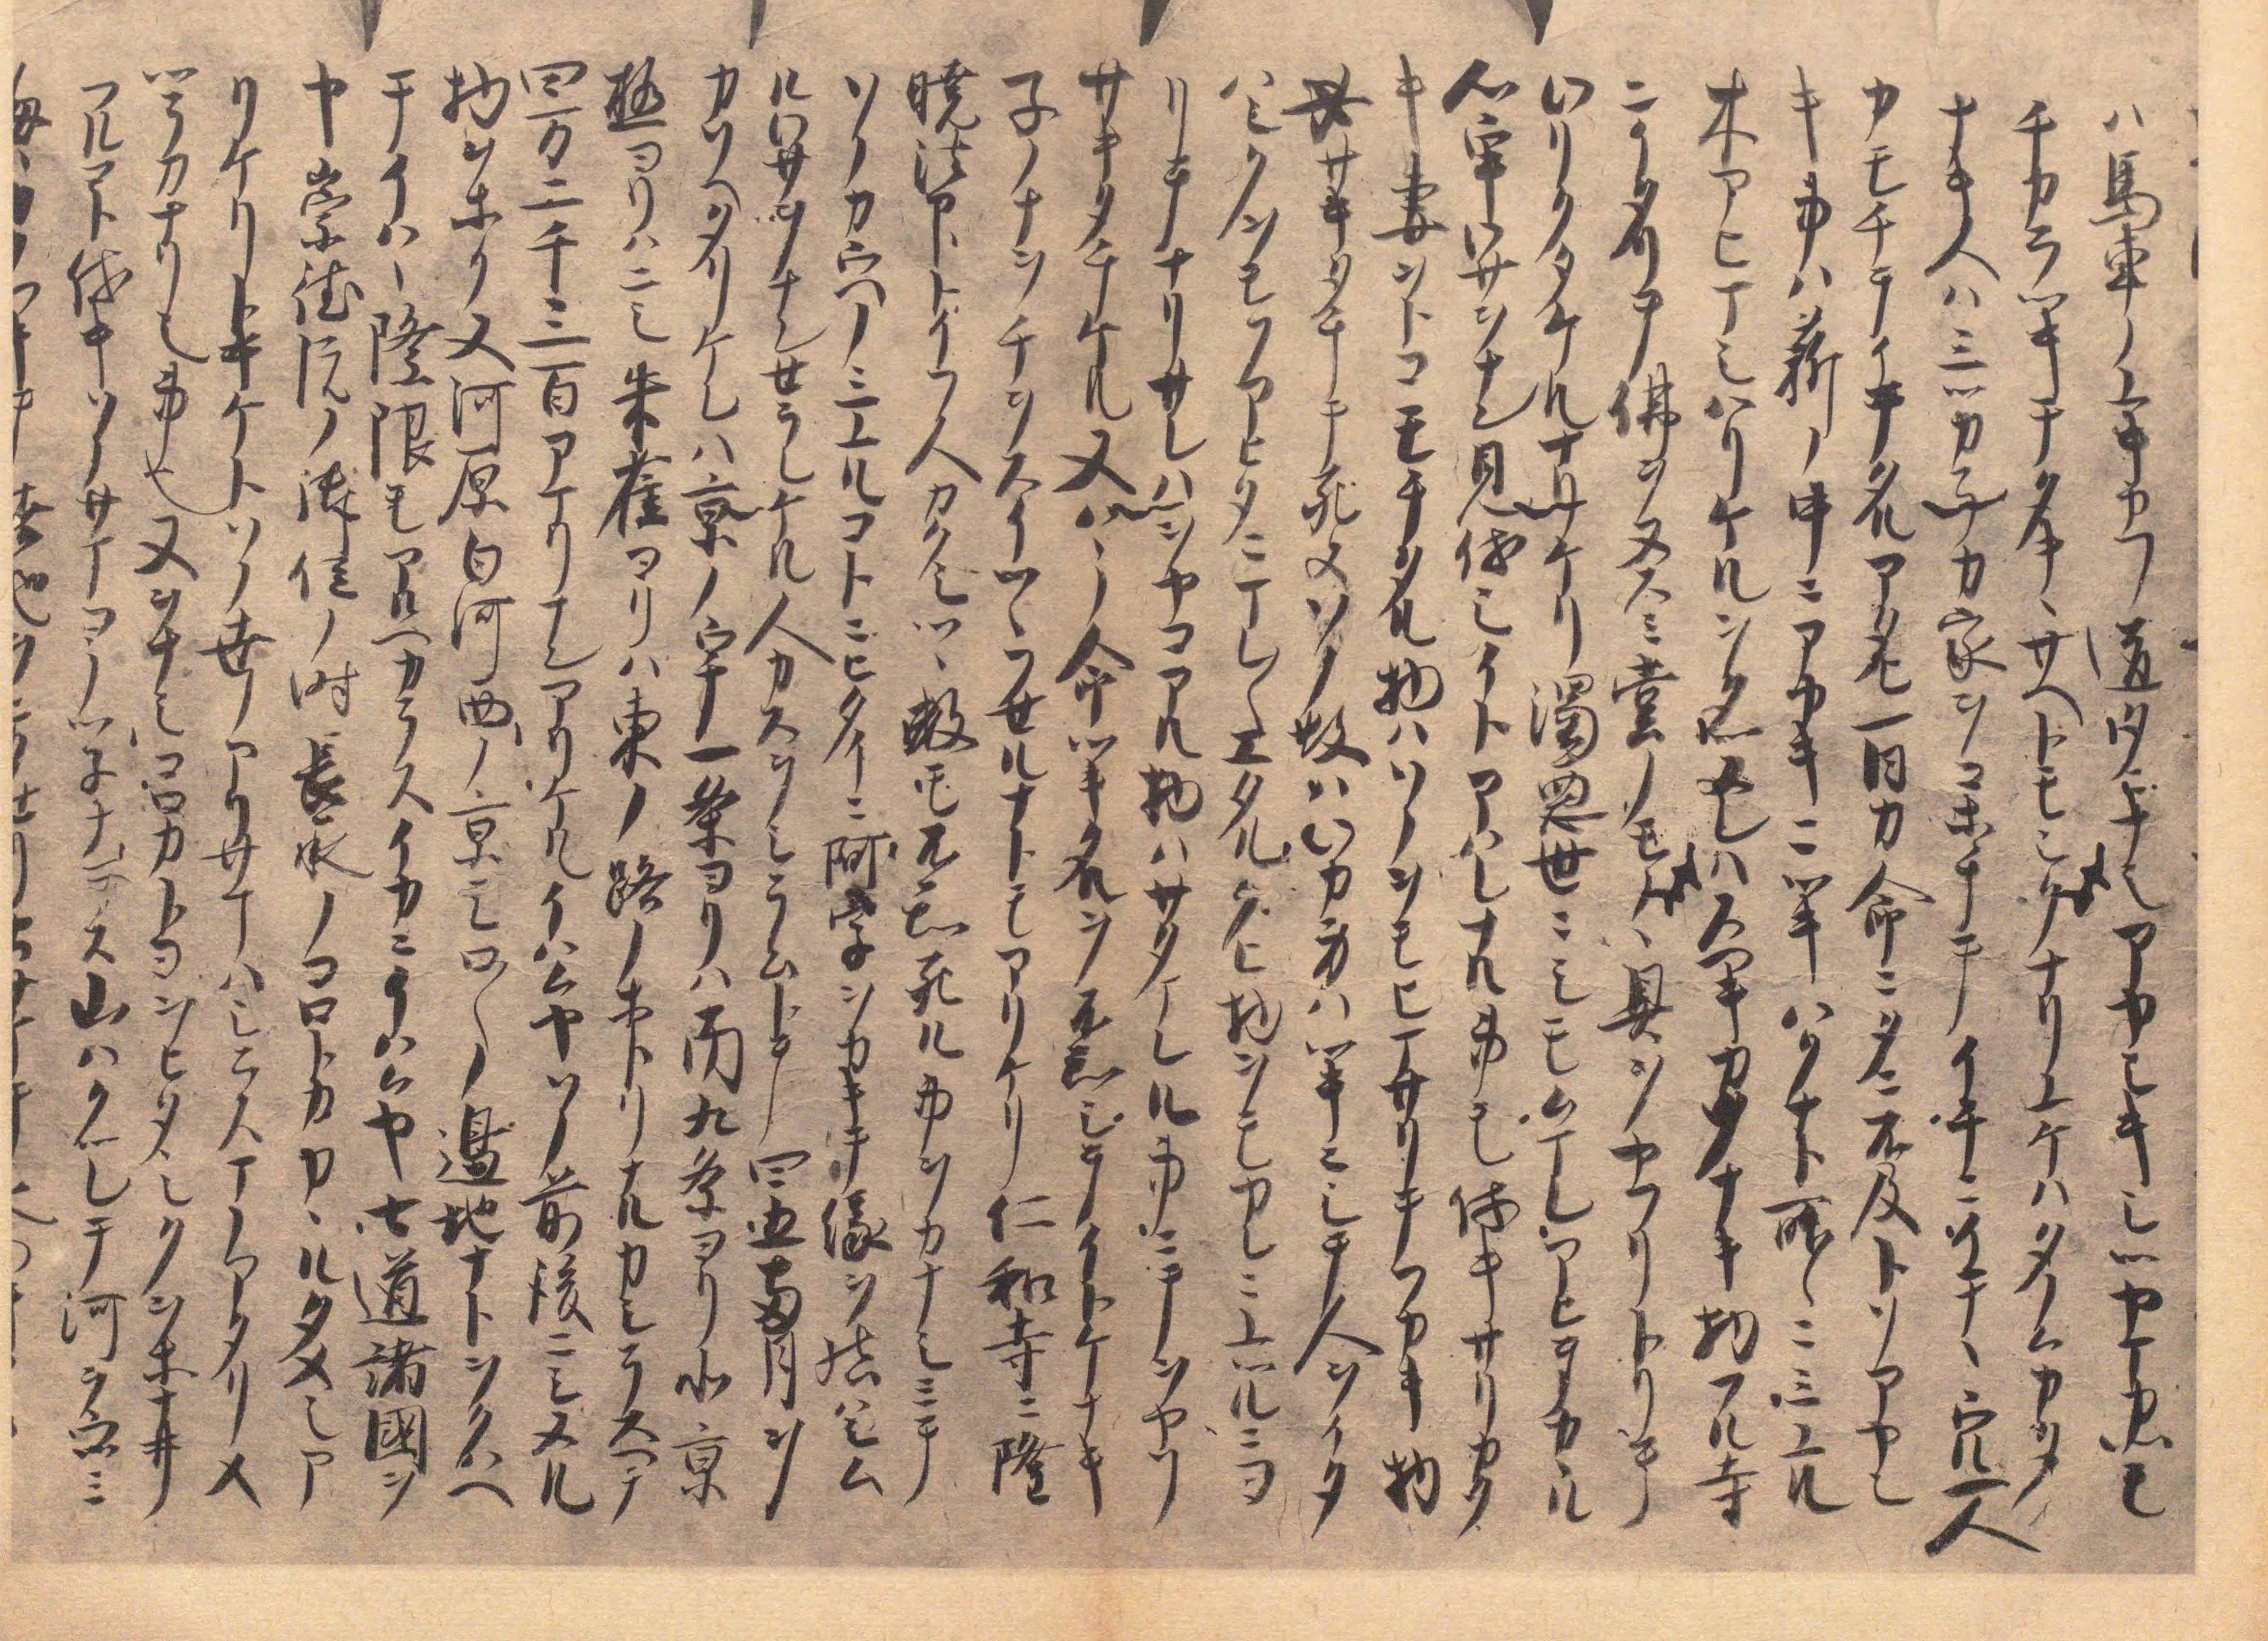 ハ馬車ノ上中カフ道タニモナシアヤシキシツヤマカツモ
チカラツキテタキヽサヘトモシクナリユケハタノムカタ
ナキ人ハミツカラカ家ヲコホチテイチニイテヽウル一人
カモチテイテタルアタヒ一日カ命ニタニ不及トソアヤシ
キ事ハ薪ノ中ニアカキニツキハクナト所々ニミユル
木アヒマシハリケルヲタツヌレハスヘキカタナキ物フル寺
ニイタリテ佛ヲヌスミ堂ノモノヽ具ヲヤフリトリテ
ハリクタケルナリケリ濁悪世ニシモムマレアヒテカヽル
心ウキワサヲナン見侍シイトアハレナル事モ侍キサリカタ
キ妻ヲトコモチタル物ハソノヲモヒマサリテフカキ物
必サキタチテ死ヌソノ故ハワカ身ハツキニシテ人ヲイタ
ハシクヲモフアヒタニマレ〳〵エタルクヒ物ヲモカレニユツルニヨ
リテナリサレハヲヤコアル物ハサタマレル事ニテヲヤソ
サキタチケル又ハヽノ命ツキタルヲ不知シテイトケナキ
子ノナヲチヲスイツヽフセルナトモアリケリ仁和寺ニ隆
暁法印トイフ人カクシツヽ数モ不知死ル事ヲカナシミテ
ソノカウヘノミユルコトニヒタイニ阿字ヲカキテ縁ヲ結ハシム
ルワサヲナンセラレケル人カスヲシラムトテ四五両月ヲ
カソヘタリケレハ京ノウチ一条ヨリハ南九条ヨリ北京
極ヨリハニシ朱雀ヨリハ東ノ路ノホトリナルカシラスヘテ
四万二千三百アマリナンアリケルイハムヤソノ前後ニシヌル
物ヲホク又河原白河西ノ京モロ〳〵ノ邊地ナトヲクハヘ
テイハヽ際限モアルヘカラスイカニイハムヤ七道諸國ヲ
ヤ崇徳院ノ御位ノ時長承ノコロトカカヽルタメシア
リケリトキケトソノ世ノアリサマハシラスマノアタリメ
ツラカナリシ事也又ヲナシコロカトヨヲヒタヽシクヲホナヰ
フルコト侍キソノサマヨノツネナラス山ハクツレテ河ヲウツミ